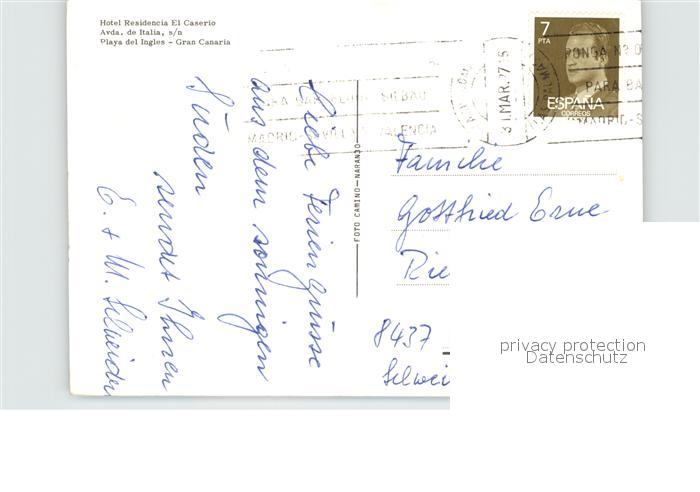 Hotel Residencia El Caserio
Avda. de Italia, s/n
Playa del Ingles - Gran Canaria
Liebe Feriengrüsse
aus dem sonnigen
Süden
sendet Ihnen
E. + W. Schneider
FOTO CAMINO—NARANJO
7
PTA
ESPAÑA
CORREOS
MAR. 77
PONGA Nº D
PARA BA
MADRID-S
BILBAO
MADRID-SEVILLA VALENCIA
Familie
Gottfried Erne
Rie
8437
Schwei
privacy protection
Datenschutz